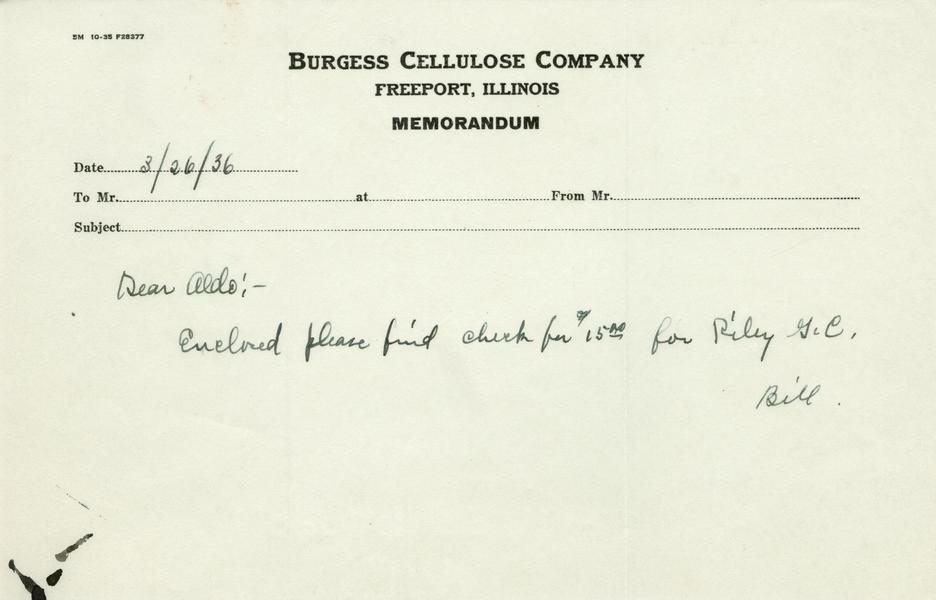 5M 10-35 F28377
BURGESS CELLULOSE COMPANY
FREEPORT, ILLINOIS
MEMORANDUM
Date 3/26/36
To Mr. at From Mr.
Subject
Dear Aldo:-
Enclosed please find check for $15.00 for Riley G.C.
Bill.